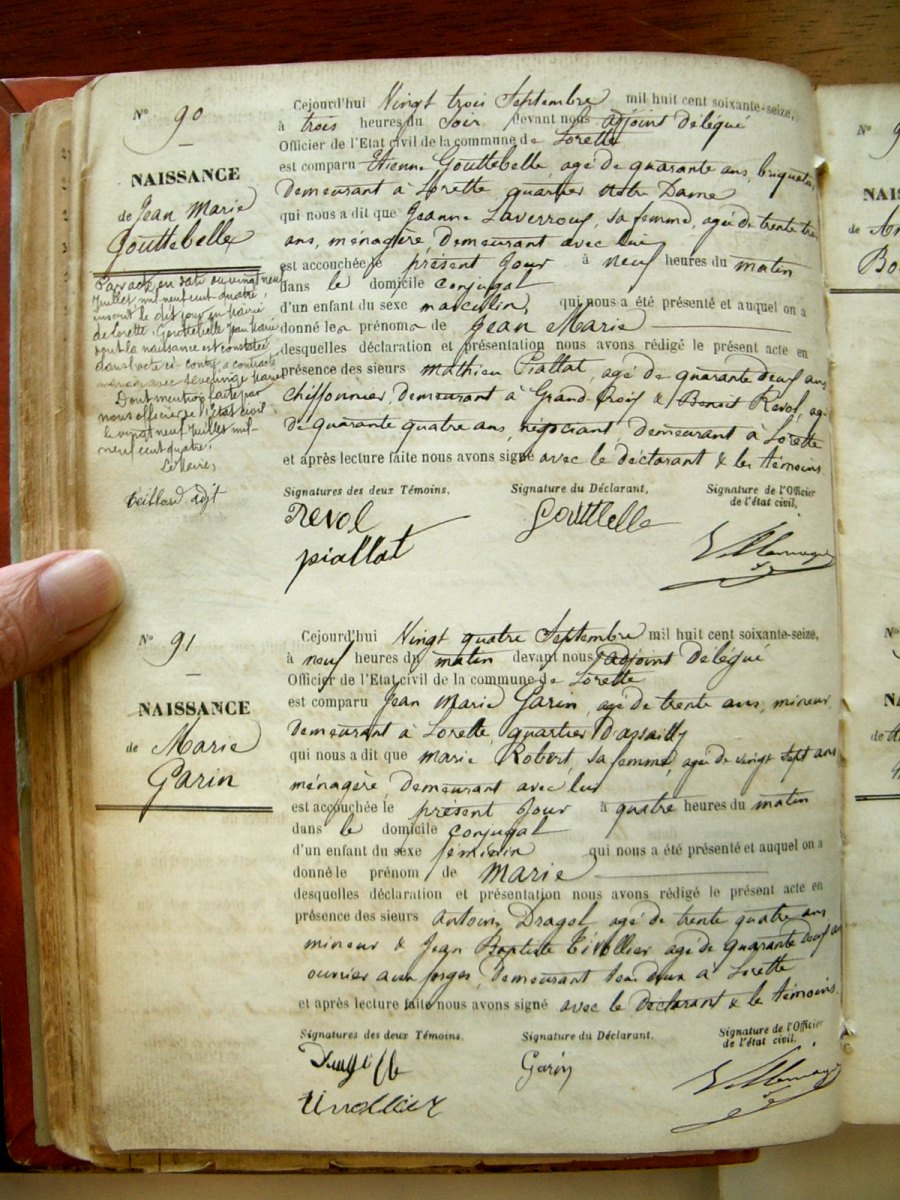 N° 90
NAISSANCE
de Jean Marie
Gouttebelle
Par acte en date du vingt neuf
Juillet mil neuf cent quatre,
inscrit le dit jour en mairie
de Lorette, Gouttebelle Jean Marie
dont la naissance est constatée
dans l'acte ci-contre, a contracté
mariage avec
Dont mention faite par
nous officier de l'Etat civil,
le vingt neuf Juillet mil
neuf cent quatre.
Le Maire,
adjt
Cejourd'hui Vingt trois Septembre mil huit cent soixante-seize,
à trois heures du Soir devant nous adjoint délégué
Officier de l'Etat civil de la commune de Lorette
est comparu Etienne Gouttebelle, agé de quarante ans, briquetier
demeurant à Lorette quartier Notre Dame
qui nous a dit que Jeanne Laverroux, sa femme, agé de trente trois
ans, ménagère, demeurant avec lui
est accouchée le présent Jour à neuf heures du matin
dans le domicile conjugal
d'un enfant du sexe masculin, qui nous a été présenté et auquel on a
donné les prénoms de Jean Marie
desquelles déclaration et présentation nous avons rédigé le présent acte en
présence des sieurs Mathieu Piallat, agé de quarante deux ans
chiffonnier, demeurant à Grand Croix & Benoit Revol, agé
de quarante quatre ans, négociant demeurant à Lorette
et après lecture faite nous avons signé avec le déclarant & les témoins
Signatures des deux Témoins. Signature du Déclarant, Signature de l'Officier
de l'état civil,
Revol
Piallat
Gouttebelle
N° 91
NAISSANCE
de Marie
Garin
Cejourd'hui Vingt quatre Septembre mil huit cent soixante-seize,
à neuf heures du matin devant nous adjoint délégué
Officier de l'Etat civil de la commune de Lorette
est comparu Jean Marie Garin, agé de trente ans, mineur,
demeurant à Lorette quartier Dassailly
qui nous a dit que marie Robert, sa femme, agé de vingt sept ans
ménagère, demeurant avec lui
est accouchée le présent Jour à quatre heures du matin
dans le domicile conjugal
d'un enfant du sexe féminin qui nous a été présenté et auquel on a
donné le prénom de Marie
desquelles déclaration et présentation nous avons rédigé le présent acte en
présence des sieurs Antoine Dragol, agé de trente quatre ans
mineur & Jean Baptiste Tivollier agé de quarante deux ans
ouvrier aux forges, demeurant tous deux à Lorette
et après lecture faite nous avons signé avec le Déclarant & les témoins.
Signatures des deux Témoins. Signature du Déclarant. Signature de l'Officier
de l'état civil,
Garin